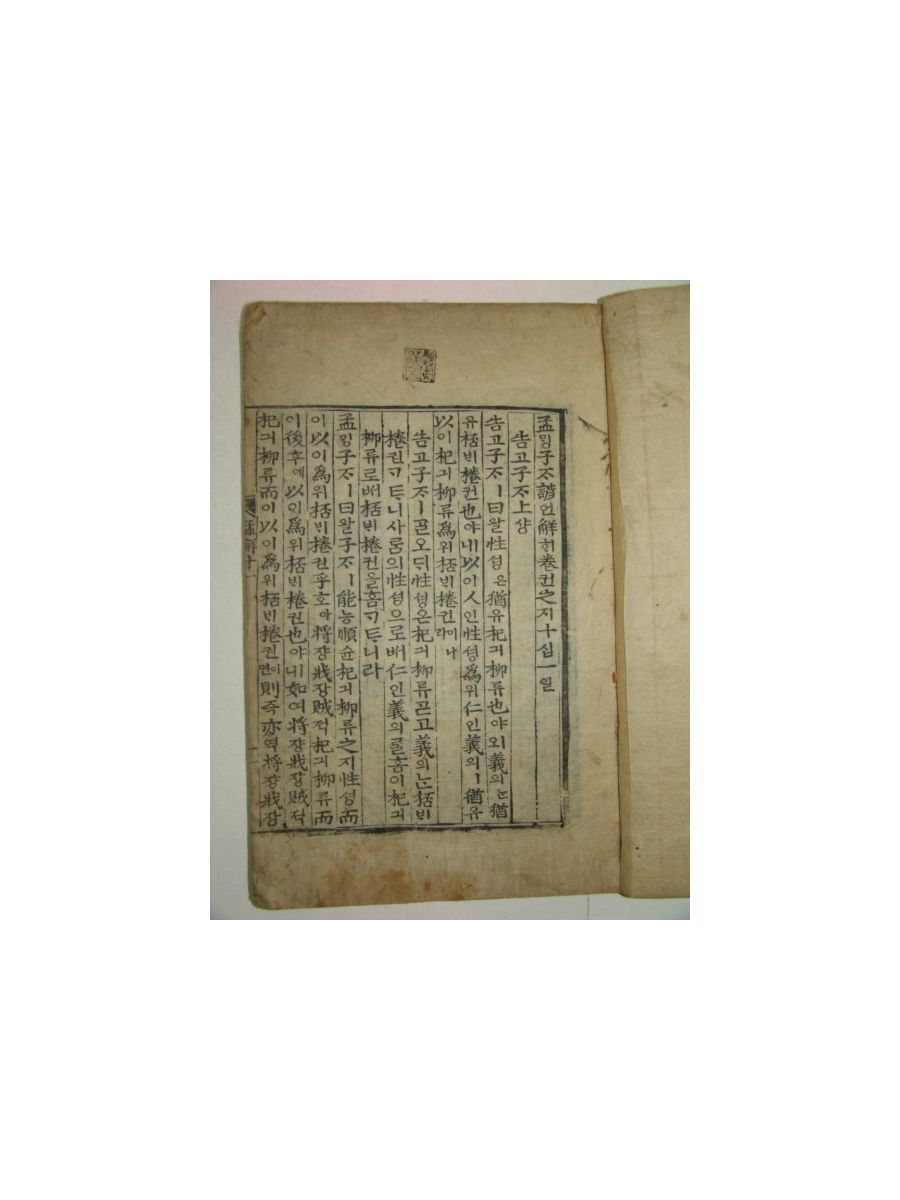 孟ᄆᆡᇰ子ᄌᆞ諺언解ᄒᆡ卷권之지十십一일
告고子ᄌᆞ上샹
告고子ᄌᆞㅣ曰왈性셩은猶유杞긔柳류也야ㅣ오義의ᄂᆞᆫ猶
유桮ᄇᆡ棬권也야ㅣ니以이人인性셩爲위仁인義의ㅣ猶유
以이杞긔柳류爲위桮ᄇᆡ棬권이니라
告고子ᄌᆞㅣᄀᆞᆯ오ᄃᆡ性셩은杞긔柳류ᄀᆞᆮ고義의ᄂᆞᆫ桮ᄇᆡ
棬권ᄀᆞᄐᆞ니사ᄅᆞᆷ의性셩으로ᄡᅥ仁인義의ᄅᆞᆯ홈이杞긔
柳류로ᄡᅥ桮ᄇᆡ棬권을홈ᄀᆞᄐᆞ니라
孟ᄆᆡᇰ子ᄌᆞㅣ曰왈子ᄌᆞㅣ能능順슌杞긔柳류之지性셩而
이以이爲위桮ᄇᆡ棬권乎호아將쟝戕장賊적杞긔柳류而
이後후에以이爲위桮ᄇᆡ棬권也야ㅣ니如여將쟝戕장賊적
杞긔柳류而이以이爲위桮ᄇᆡ棬권이면則즉亦역將쟝戕장
孟解十一